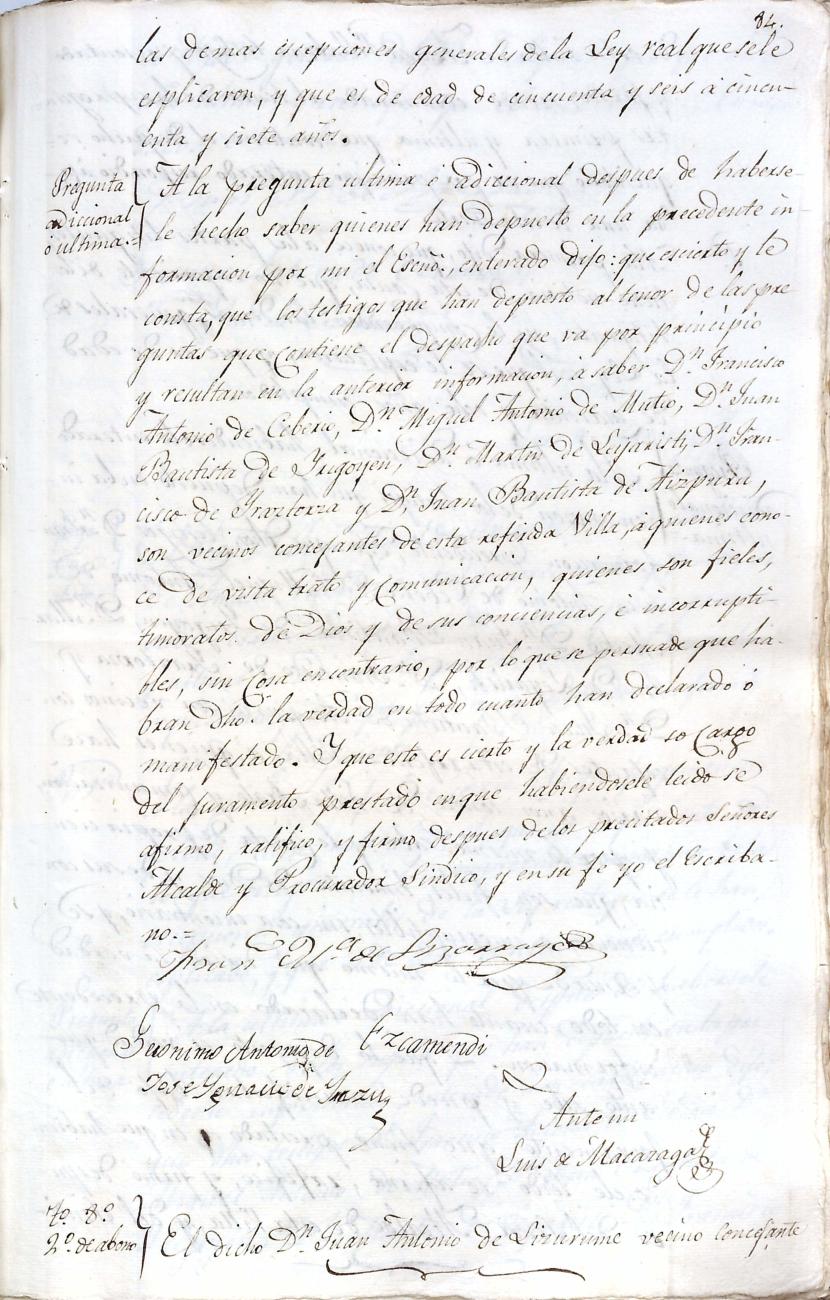 84.
las demas escepciones generales de la Ley real que se le
esplicaron, y que es de edad de cincuenta y seis á cincu-
enta y siete años.
Pregunta
adiccional
ó ultima.=
A la pregunta ultima ó adiccional despues de haberse-
le hecho saber quienes han depuesto en la precedente in-
formacion por mi el Esnō., enterado dijo: que es cierto y le
consta, que los testigos que han depuesto al tenor de las pre
guntas que contiene el despacho que va por principio
y resultan en la anterior informacion, á saber Dn. Francisco
Antonio de Ceberio, Dn. Miguel Antonio de Mutio, Dn. Juan
Bautista de Yrigoyen, Dn. Martin de Leyaristi, Dn. Fran-
cisco de Yraztorza y Dn. Juan Bautista de Aizpuru,
son vecinos concejantes de esta referida Villa, á quienes cono-
ce de vista trato y comunicacion, quienes son fieles,
timoratos de Dios y de sus conciencias, é incorrupti-
bles, sin cosa en contrario, por lo que se persuade que ha-
bran Dho. la verdad en todo cuanto han declarado ó
manifestado. Y que esto es cierto y la verdad so cargo
del juramento prestado en que habiendosele leido se
afirmo, ratifico, y firmo despues de los precitados Señores
Alcalde y Procurador Sindico, y en su fé yo el Escriba-
no.=
Fran.co M.a de Lizarraga
Geronimo Antonio de Ezcamendi
Jose Ygnacio de Ynzu
Antemi
Luis de Macazaga
7º. 8º.
2º. de abono
El dicho Dn. Juan Antonio de Lizurume vecino concejante